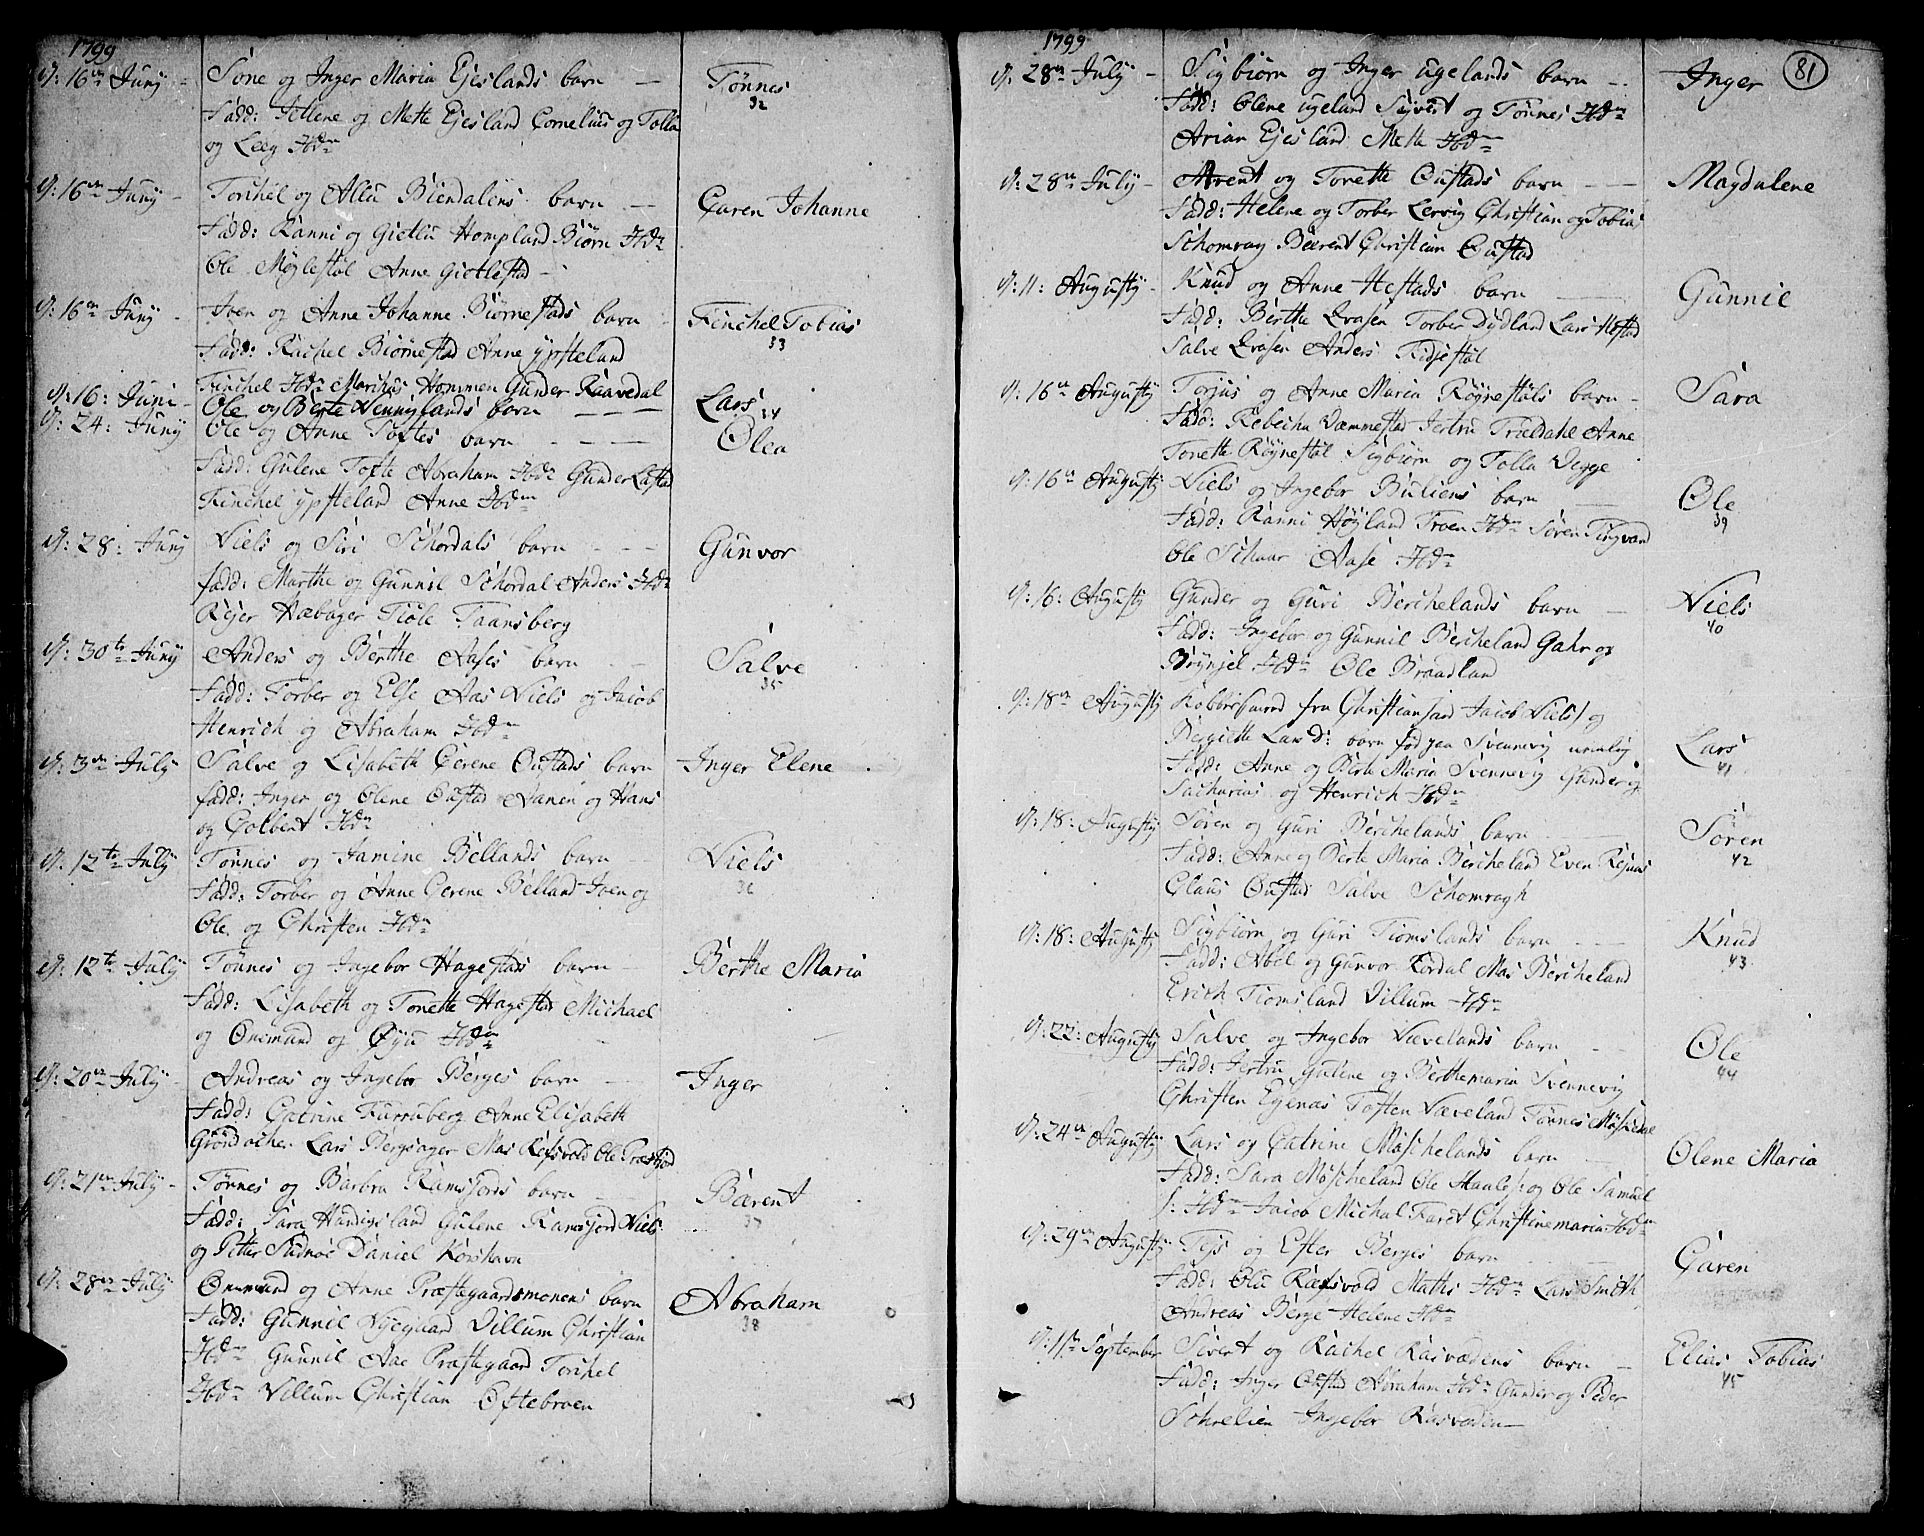 1799
d: 16de Juny - Søne og Inger Maria Ejeslands barn — Tønnes
32
Fadd: Jellene og Mette Ejesland Cornelius og Tolla
og Leeg Ibdm
d: 16de Juny - Torchel og Allu Biendalens barn — Caren Johanne
Fadd: Ranni og Gietlu Hompland Biørn Ibdm
Ole Møglestøl Anne Gietlestad -
d: 16de Juny - Joen og Anne Johanne Biørnestads barn - Tinchel Tobias
33
Fadd: Rachel Biørnestad Anne ypsteland
Tinchel Ibdm Marchus Hommen Gunder Raavedal
d: 16: Juni - Ole og Berte Vennislands barn — Lars
34
d: 24: Juny Ole og Anne Toftes barn - - — Olea
Fadd: Gulene Tofte Abraham Ibdm Gunder Lastad
Tinchel ypsteland Anne Ibdm
d: 28: Juny Niels og Siri Schordals barn - - - Gunvor
fadd: Marthe og Gunnil Schordal Anders Ibdm
Rejer Hæbager Tiøle Taansberg
d: 30te Juny Anders og Berthe Aases barn - - Salve
35
Fadd: Torber og Else Aas Niels og Jacob
Henrich og Abraham Ibdm
d: 3de July Salve og Lisabeth Cerene Oustads barn Inger Elene
fadd: Inger og Olene Oustad Aanen og Hans
og Colbent Ibdm
d: 12te July Tønnes og Jamine Bellands barn - Niels
36
Fadd: Torber og Anne Cerene Belland Joen og
Ole og Christen Ibdm
d: 12te July Tønnes og Ingebor Hagestads barn - Berthe Maria
Fadd: Lisabeth og Tonette Hagestad Michael
og Onemund og Øyu Ibdm
d: 20de July - Andreas og Ingebor Berges barn — Inger
Fadd: Catrine Furruberg Anne Elisabeth
Grøndochen Lars Bergsager Mas Refsvold Ole
d: 21de July - Tønnes og Barbra Ramsfjords barn - - Bærent
37
Fadd: Sara Handigsland Gulene Ramsfjord Niels
og Petter Sudnøe Daniel Korshavn
d: 28de July Onemund og Anne Præstegaardsmonens barn Abraham
38
Fadd: Gunnil Nygaard Villum Christian
Ibdm Gunnil Aae Præstegaard Torchel
Ibdm Villum Christian Oftebroen
1799
81
d: 28de July - Sigbiørn og Inger ugelands barn - Inger
Fadd: Olene ugeland Syvert og Tønnes Ibdm
Arian Ejesland Mette Ibdm
d: 28de July - Arent og Tonette Oustads barn - — Magdalene
Fadd: Helene og Torber Lervig Christian og Tobias
Schomrag Bærent Christian Oustad
d: 11: Augusty - Knud og Anne Hestads barn — Gunnil
Fadd: Berthe Qvasen Torber Dydland Lars Hestad
Salve Qvasen Anders Tidjestøl
d: 16de Augusty Torjus og Anne Maria Røynestøls barn - Sara
Fadd: Rebecha Væmmestad Jertru Trældahl Anne
Tonette Røynestøl Sigbiørn og Tolla Vegge
d: 16de Augusty Niels og Ingebor Buliens barn — Ole
39
Fadd: Ranni Høyland Troen Ibdm Søren Tingvan
Ole Schaar Aase Ibdm
d: 16: Augusty Gunder og Guri Berchelands barn — Niels
40
Fadd: Ingebor og Gunnil Bercheland Gahr og
Brynjel Ibdm Ole Braadland
d: 18de Augusty fra Christiansand Jacob Niels: og
Bergiette Lars D: barn fød paa Svennevig nemlig Lars
41
Fadd: Anne og Berte Maria Svennevig Gunder og
Sacharias og Henrich Ibdm
d: 18: Augusty Søren og Guri Berchelands barn Søren
42
Fadd: Anne og Berte Maria Bercheland Even Rejnas
Claus Oustad Salve Schomragh
d: 18: Augusty Sigbiørn og Guri Tiomslands barn - — Knud
43
Fadd: Abel og Gunvor Rordal Mas Bercheland
Erich Tiomsland Villum Ibdm
d: 22: Augusty Salve og Ingebor Nævelands barn - Ole
44
Fadd: Jertru Gulene og Berthemaria Svennevig
Christen Egenæs Toften Næveland Tønnes
d: 24de Augusty Lars og Catrine Møschelands barn — Olene Maria
Fadd: Sara Møscheland Ole Haales: og Ole Samuel
s: Ibdm Jacob Michal Faret Christinemaria Ibdm
d: 29de Augusty Tejs og Efter Berges barn - Caren
Fadd: Olu Ræfsvold Mathis Ibdm Lars Smith
Andreas Berge Helene Ibdm
d: 1ste September Sivert og Rachel Rasvædens barn — Elias Tobias
45
Fadd: Inger Oustad Abraham Ibdm Gunder og Peder
Schrelien Ingebor Rasvæden —